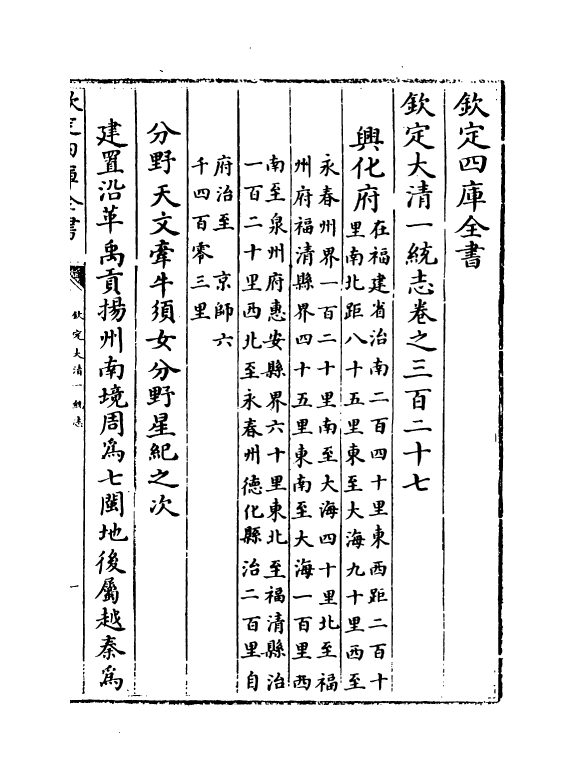 欽定四庫全書
欽定大清一統志卷之三百二十七
興化府
在福建省治南二百四十里東西距二百十
里南北距八十五里東至大海九十里西至
永春州界一百二十里南至大海四十里北至福
州府福清縣界四十五里東南至大海一百里西
南至泉州府惠安縣界六十里東北至福清縣治
一百二十里西北至永春州德化縣治二百里自
府治至 京師六
千四百零三里
分野天文牽牛須女分野星紀之次
建置沿革禹貢揚州南境周為七閩地後屬越秦為
欽定四庫全書
欽定大清一統志
一